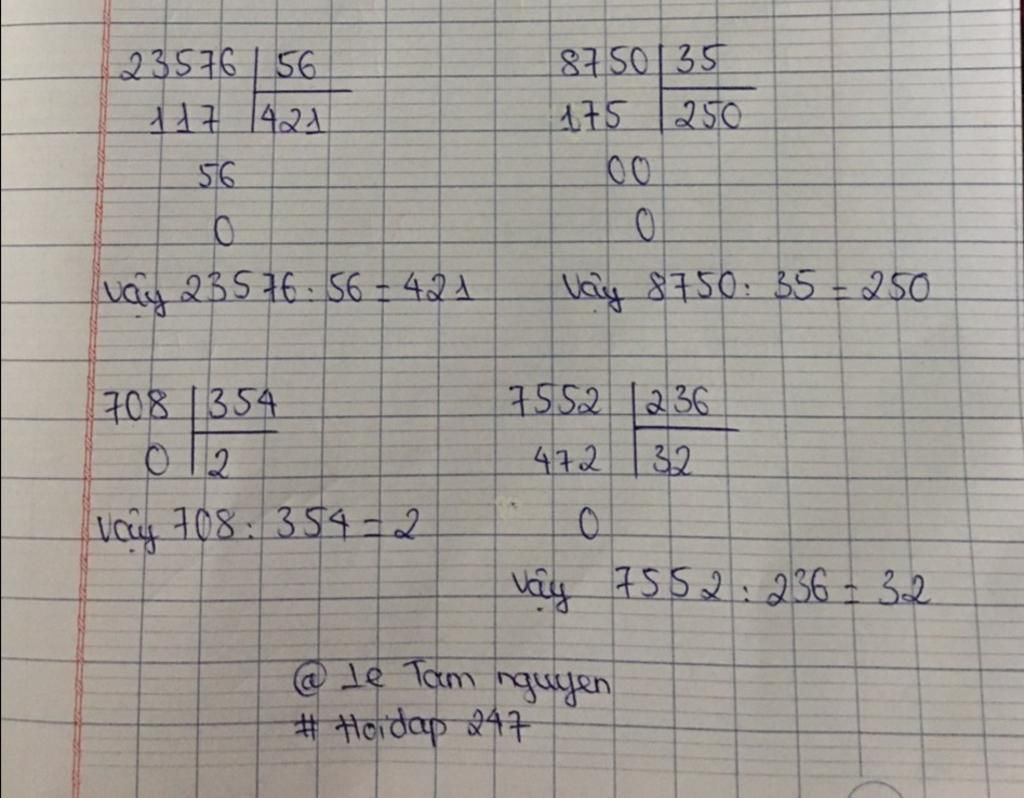 23576 56
117 421
56
0
Vậy 23576 : 56 = 421
8750 35
175 250
00
0
Vậy 8750 : 35 = 250
708 354
0 2
Vậy 708 : 354 = 2
7552 236
472 32
0
Vậy 7552 : 236 = 32
@ Le Tam nguyen
# Hoidap 247